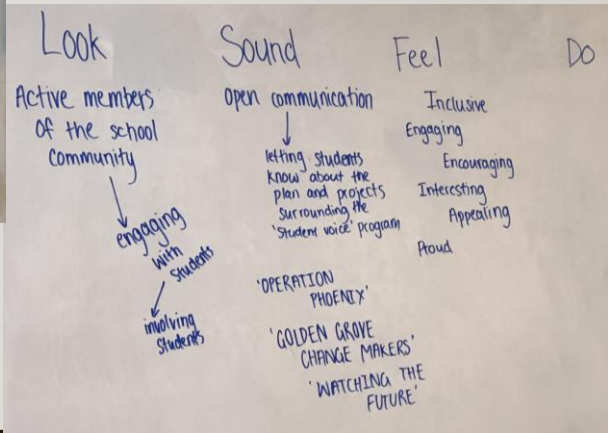 Look
Active members
of the school
community
engaging
with
students
involving
students
Sound
open communication
letting students
know about the
plan and projects
surrounding the
'student voice' program
'OPERATION
PHOENIX'
'GOLDEN GROVE
CHANGE MAKERS'
'WATCHING THE
FUTURE'
Feel
Inclusive
Engaging
Encouraging
Interesting
Appealing
Proud
Do